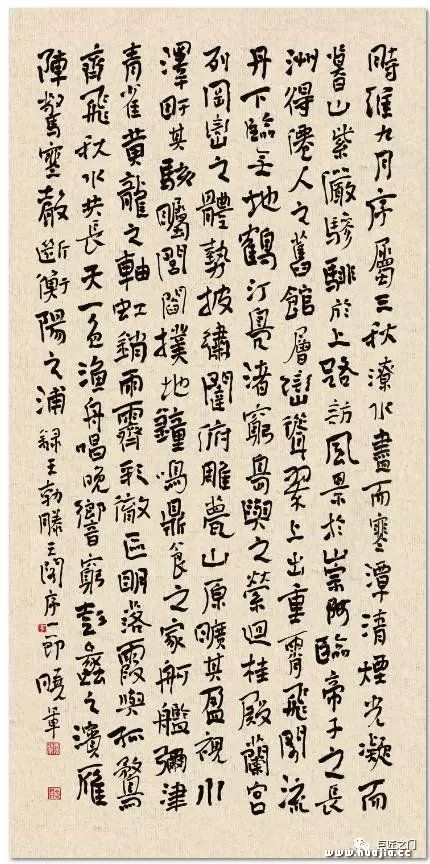 時維九月序屬三秋潦水盡而寒潭清煙光凝而
暮山紫儼驂騑於上路訪風景於崇阿臨帝子之長
洲得僊人之舊館層巒聳翠上出重霄飛閣流
丹下臨無地鶴汀鳧渚窮島嶼之縈迴桂殿蘭宮
列岡巒之體勢披繡闥俯雕甍山原曠其盈視川
澤盱其駭矚閭閻撲地鐘鳴鼎食之家舸艦彌津
青雀黃龍之軸虹銷雨霽彩徹區明落霞與孤鶩
齊飛秋水共長天一色漁舟唱晚響窮彭蠡之濱雁
陣驚寒聲斷衡陽之浦 錄王勃滕王閣序一節 曉軍
巨匠之门
www.huajia.cc